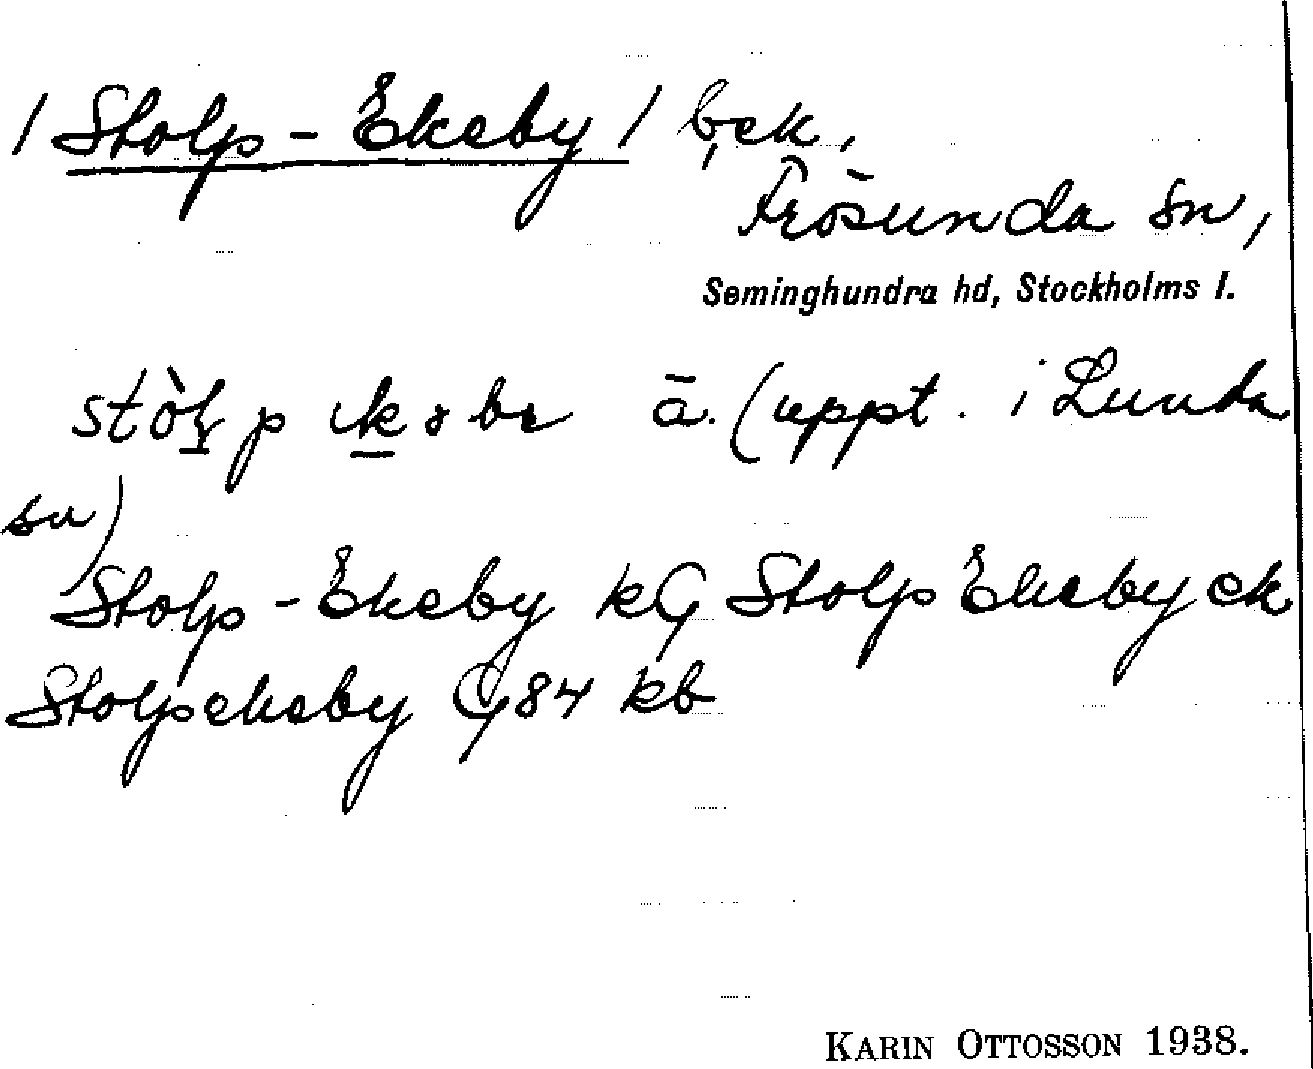 / Stolp-Ekeby / bek,
Frösunda sn,
Seminghundra hd, Stockholms l.
ā. (uppt. i Lunda
sn)
Stolp-Ekeby kG Stolp Ekeby ek
Stolpekeby G84 kb
KARIN OTTOSSON 1938.